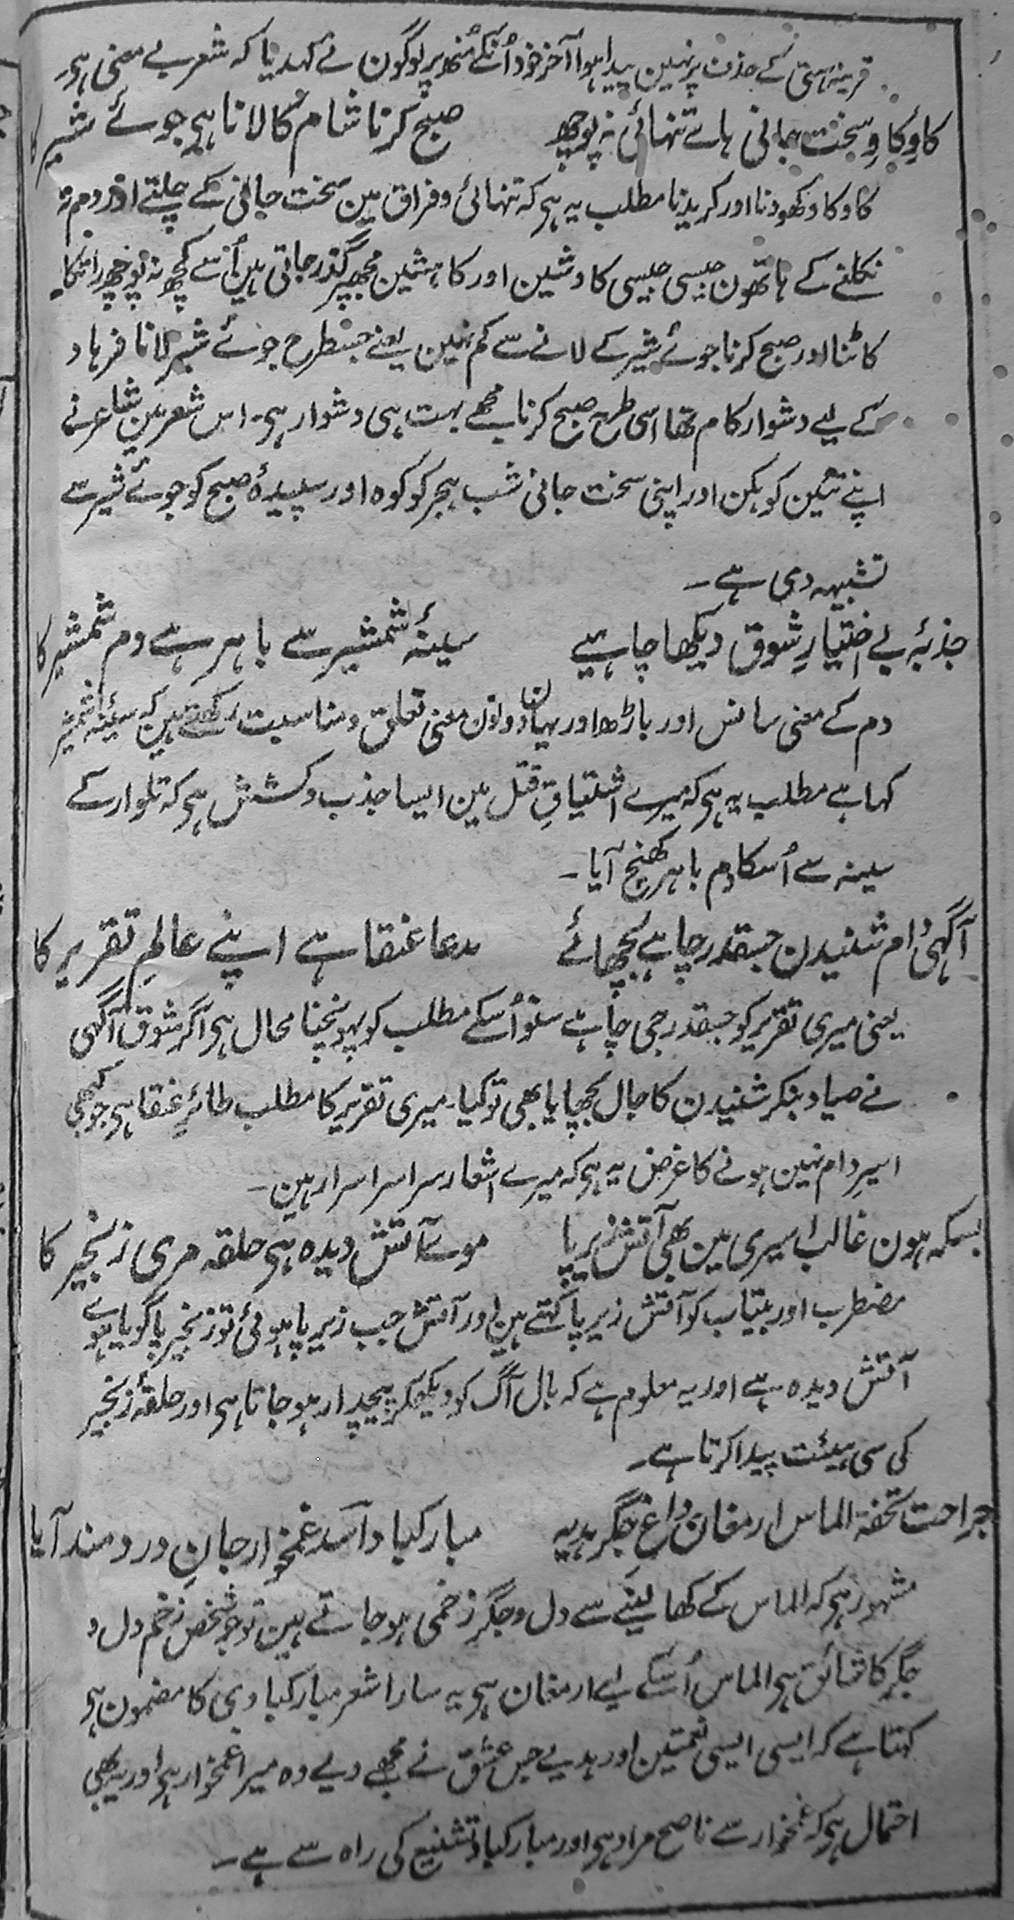 قرینہ ہستی کے حذف پر نہین پیدا ہوا آخر خود اُنکے مُنھ پر لوگون نے کہدیا کہ شعر بے معنی ہی
کاوِ کاوِ سخت جانی ہائے تنہائی نہ پوچھ صبح کرنا شام کا لانا ہی جوئے شیر کا
کاوکاو کھودنا اور کریدنا مطلب یہ ہی کہ تنہائی و فراق مین سخت جانی کے چلتے اور دم نہ
نکلنے کے ہاتھون جیسی جیسی کاوشین اور کاہشین مجھپر گذر جاتی ہین اُسے کچھ نہ پوچھ رات کا
کاٹنا اور صبح کرنا جوئے شیر کے لانے سے کم نہین یعنے جسطرح جوئے شیر لانا فرہاد
کے لیے دشوار کام تھا اسی طرح صبح کرنا مجھے بہت ہی دشوار ہی۔ اس شعر مین شاعر نے
اپنے تئین کوہکن اور اپنی سخت جانی شب ہجر کو کوہ اور سپیدۂ صبح کو جوئے شیر سے
تشبیہ دی ہے ۔
جذبۂ بے اختیارِ شوق دیکھا چاہیے سینۂ شمشیر سے باہر ہے دم شمشیر کا
دم کے معنی سانس اور باڑھ اور یہان دونون معنی تعلق و مناسبت رکھتے ہین کہ سینۂ شمشیر
کہا ہے مطلب یہ ہی کہ میرے اشتیاقِ قتل مین ایسا جذب و کشش ہی کہ تلوار کے
سینہ سے اُسکا دم باہر کھنچ آیا ۔
آگہی دام شنیدن جسقدر چاہے بچھائے مدعا عنقا ہے اپنے عالمِ تقریر کا
یعنی میری تقریر کو جسقدر جی چاہے سنو اُسکے مطلب کو پہونچنا محال ہی اگر شوق آگہی
نے صیاد بنکر شنیدن کا جال بچھایا بھی تو کیا۔ میری تقریر کا مطلب طائرِ عنقا ہی جو کبھی
اسیرِ دام نہین ہونے کا غرض یہ ہی کہ میرے اشعار سراسر اسرار ہین ۔
بسکہ ہون غالب اسیری مین بھی آتش زیرِ پا موئے آتش دیدہ ہی حلقہ مری زنجیر کا
مضطرب اور بیتاب کو آتش زیر پا کہتے ہین اور آتش جب زیر پا ہوئی تو زنجیر پا گویا موے
آتش دیدہ ہے اور یہ معلوم ہے کہ بال آگ کو دیکھکر پیچدار ہو جاتا ہی اور حلقۂ زنجیر
کی سی ہیئت پیدا کرتا ہے ۔
جراحت تحفہ الماس ارمغان داغِ جگر ہدیہ مبارکباد اَسد غمخوارِ جانِ دردمند آیا
مشہور ہی کہ الماس کے کھا لینے سے دل و جگر زخمی ہو جاتے ہین تو جو شخص زخمِ دل و
جگر کا شائق ہی الماس اُسکے لیے ارمغان ہی یہ سارا شعر مبارکبادی کا مضمون ہی
کہتا ہے کہ ایسی ایسی نعمتین اور ہدیے جس عشق نے مجھے دیے وہ میرا غمخوار ہی اور یہ بھی
احتمال ہی کہ غمخوار سے ناصح مراد ہی اور مبارکباد تشنیع کی راہ سے ہے ۔